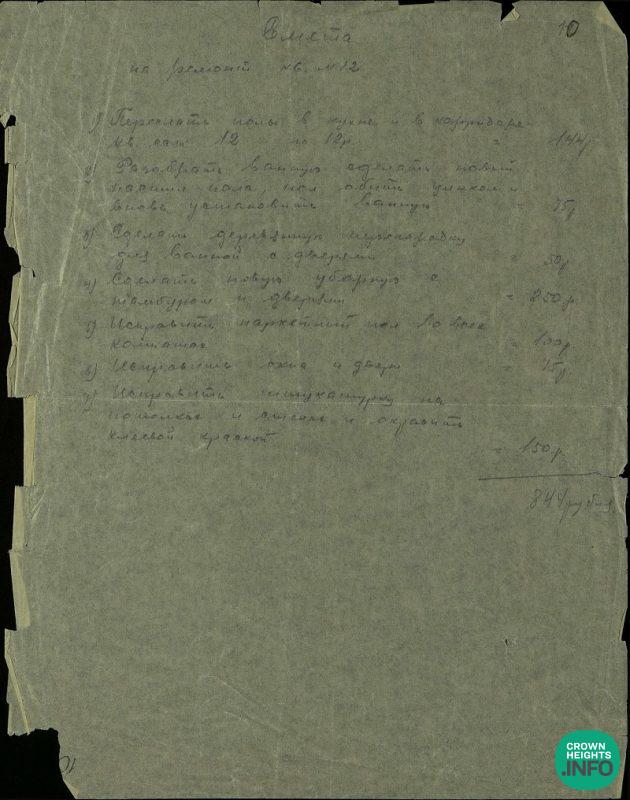 Смета
10
на ремонт кв. №12
1) Переслать полы в кухне и в корридоре
кв. саж 12 по 12р. = 144р
2) Разобрать ванную сделать новый
настил пола, пол обить цинком и
вновь установить ванную = 75р
3) Сделать деревянную перегородку
для ванной с дверями = 50р
4) Сделать новую уборную с
тамбуром и дверями = 250р
5) Исправить паркетный пол во всех
комнатах = 100р
6) Исправить окна и двери = 75р
7) Исправить штукатурку на
потолках и стенах и окрасить
клеевой краской = 150р
844 рубля
CROWN
HEIGHTS
.INFO